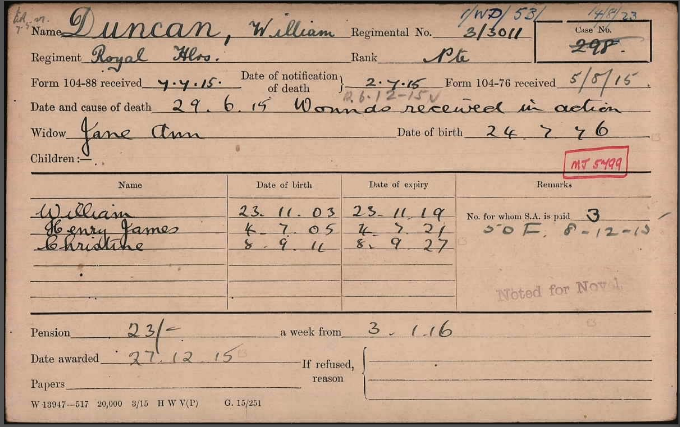 1/WD/531 14/8/23
Name Duncan, William Regimental No. 3/3011 Case No. 298.
Regiment Royal Hlrs. Rank Pte
Form 104-88 received 7.7.15. Date of notification of death } 2.7.15 Form 104-76 received 5/8/15.
Date and cause of death 29.6.15 Wounds received in action
Widow Jane Ann Date of birth 24 7 76
Children:—
MJ 5499
Name Date of birth Date of expiry Remarks
William 23.11.03 23.11.19 No. for whom S.A. is paid 3
Henry James 4.7.05 4.7.21 50 F. 8-12-15
Christine 8.9.11 8.9.27
Noted for Novel
Pension 23/- a week from 3.1.16
Date awarded 27.12.15 If refused, reason
Papers
W 13947—517 20,000 3/15 H W V(P) G. 15/251